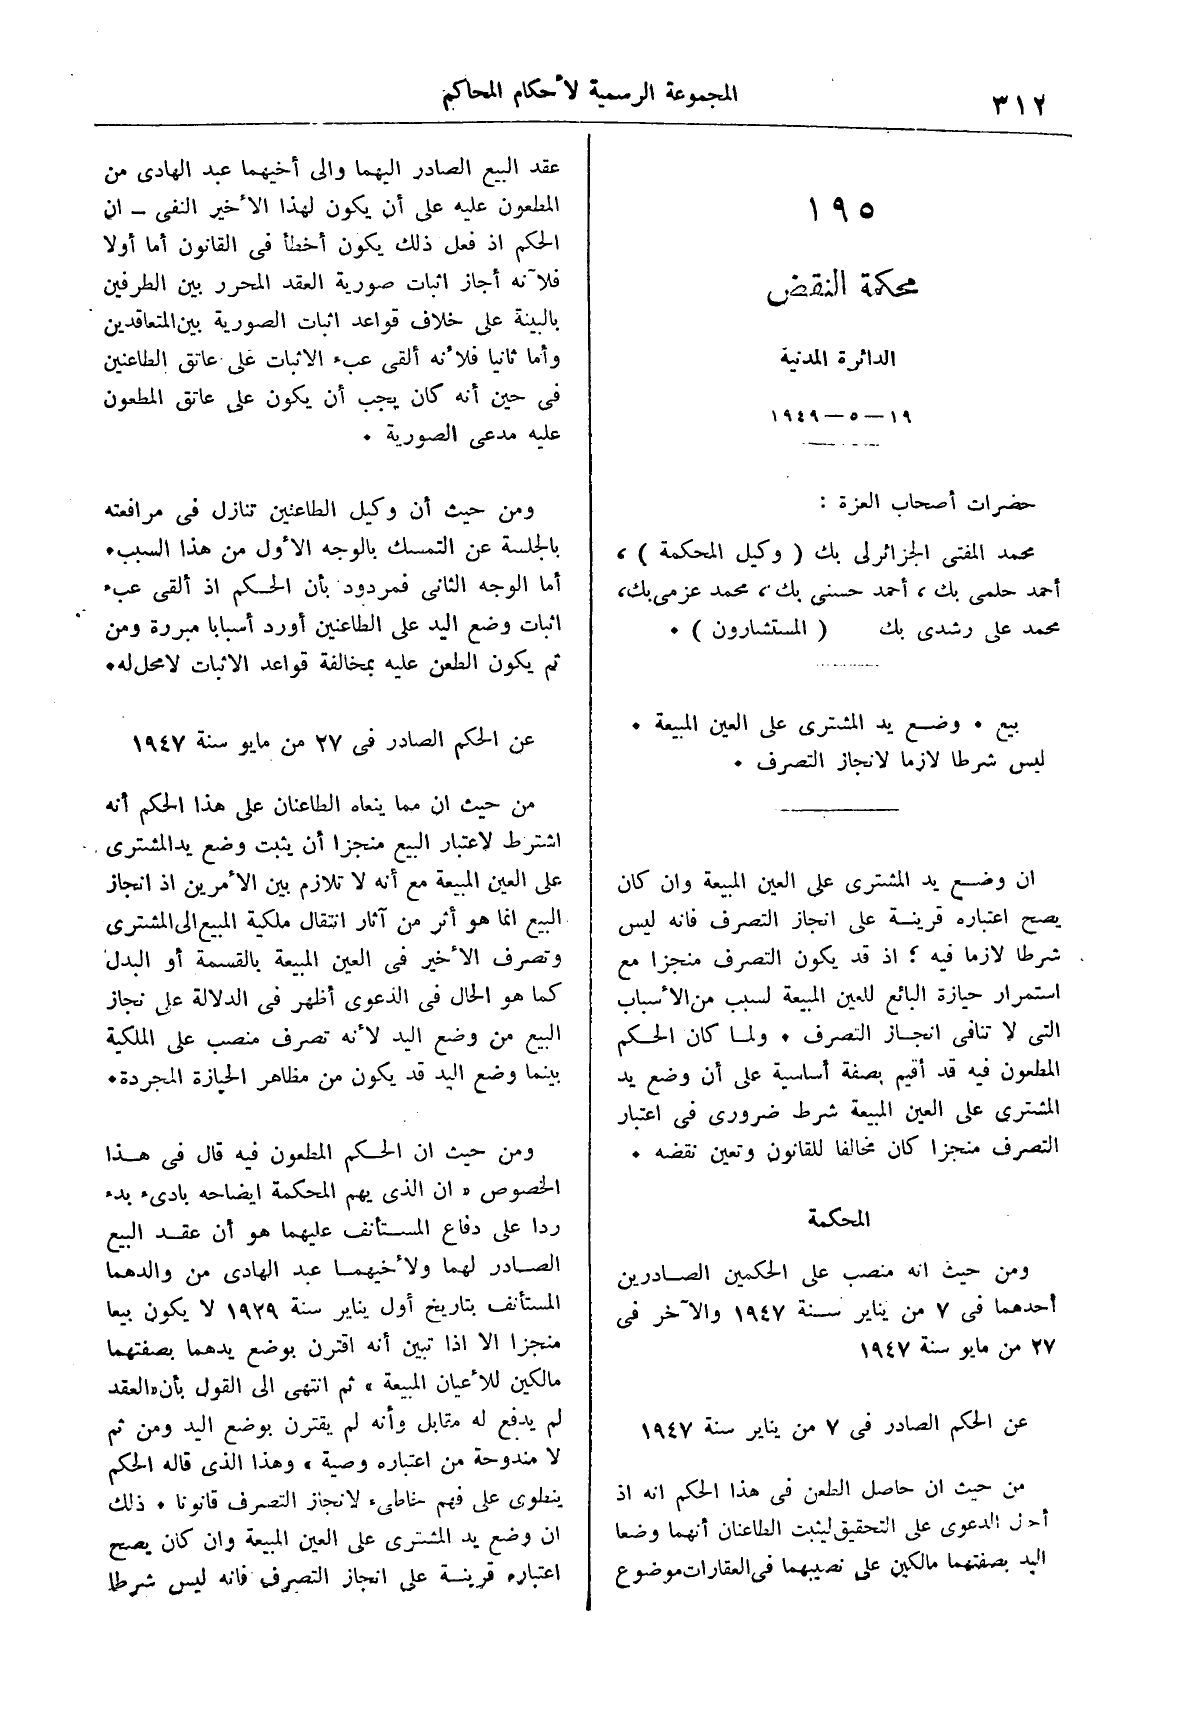 ٣١٢
المجموعة الرسمية لأحكام المحاكم
١٩٥
محكمة النقض
الدائرة المدنية
١٩ – ٥ – ١٩٤٩
حضرات أصحاب العزة :
محمد المفتى الجزائرلى بك ( وكيل المحكمة ) ،
أحمد حلمى بك ، أحمد حسنى بك ، محمد عزمى بك،
محمد على رشدى بك ( المستشارون ) .
بيع . وضع يد المشترى على العين المبيعة .
ليس شرطا لازما لانجاز التصرف .
ان وضع يد المشترى على العين المبيعة وان كان
يصح اعتباره قرينة على انجاز التصرف فانه ليس
شرطا لازما فيه ؛ اذ قد يكون التصرف منجزا مع
استمرار حيازة البائع للعين المبيعة لسبب من الأسباب
التى لا تنافى انجاز التصرف . ولما كان الحكم
المطعون فيه قد أقيم بصفة أساسية على أن وضع يد
المشترى على العين المبيعة شرط ضرورى فى اعتبار
التصرف منجزا كان مخالفا للقانون وتعين نقضه .
المحكمة
ومن حيث انه منصب على الحكمين الصادرين
أحدهما فى ٧ من يناير سنة ١٩٤٧ والآخر فى
٢٧ من مايو سنة ١٩٤٧
عن الحكم الصادر فى ٧ من يناير سنة ١٩٤٧
من حيث ان حاصل الطعن فى هذا الحكم انه اذ
أحل الدعوى على التحقيق ليثبت الطاعنان أنهما وضعا
اليد بصفتهما مالكين على نصيبهما فى العقارات موضوع
عقد البيع الصادر اليهما والى أخيهما عبد الهادى من
المطعون عليه على أن يكون لهذا الأخير النفى – ان
الحكم اذ فعل ذلك يكون أخطأ فى القانون أما أولا
فلأنه أجاز اثبات صورية العقد المحرر بين الطرفين
بالبينة على خلاف قواعد اثبات الصورية بين المتعاقدين
وأما ثانيا فلأنه ألقى عبء الاثبات على عاتق الطاعنين
فى حين أنه كان يجب أن يكون على عاتق المطعون
عليه مدعى الصورية .
ومن حيث أن وكيل الطاعنين تنازل فى مرافعته
بالجلسة عن التمسك بالوجه الأول من هذا السبب.
أما الوجه الثانى فمردود بأن الحكم اذ ألقى عبء
اثبات وضع اليد على الطاعنين أورد أسبابا مبررة ومن
ثم يكون الطعن عليه بمخالفة قواعد الاثبات لا محل له.
عن الحكم الصادر فى ٢٧ من مايو سنة ١٩٤٧
من حيث ان مما ينعاه الطاعنان على هذا الحكم أنه
اشترط لاعتبار البيع منجزا أن يثبت وضع يد المشترى
على العين المبيعة مع أنه لا تلازم بين الأمرين اذ انجاز
البيع انما هو أثر من آثار انتقال ملكية المبيع الى المشترى
وتصرف الأخير فى العين المبيعة بالقسمة أو البدل
كما هو الحال فى الدعوى أظهر فى الدلالة على نجاز
البيع من وضع اليد لأنه تصرف منصب على الملكية
بينما وضع اليد قد يكون من مظاهر الحيازة المجردة.
ومن حيث ان الحكم المطعون فيه قال فى هذا
الخصوص « ان الذى يهم المحكمة ايضاحه بادىء بدء
ردا على دفاع المستأنف عليهما هو أن عقد البيع
الصادر لهما ولأخيهما عبد الهادى من والدهما
المستأنف بتاريخ أول يناير سنة ١٩٢٩ لا يكون بيعا
منجزا الا اذا تبين أنه اقترن بوضع يدهما بصفتهما
مالكين للأعيان المبيعة » ثم انتهى الى القول بأن «العقد
لم يدفع له مقابل وأنه لم يقترن بوضع اليد ومن ثم
لا مندوحة من اعتباره وصية » وهذا الذى قاله الحكم
ينطوى على فهم خاطىء لانجاز التصرف قانونا . ذلك
ان وضع يد المشترى على العين المبيعة وان كان يصح
اعتباره قرينة على انجاز التصرف فانه ليس شرطا